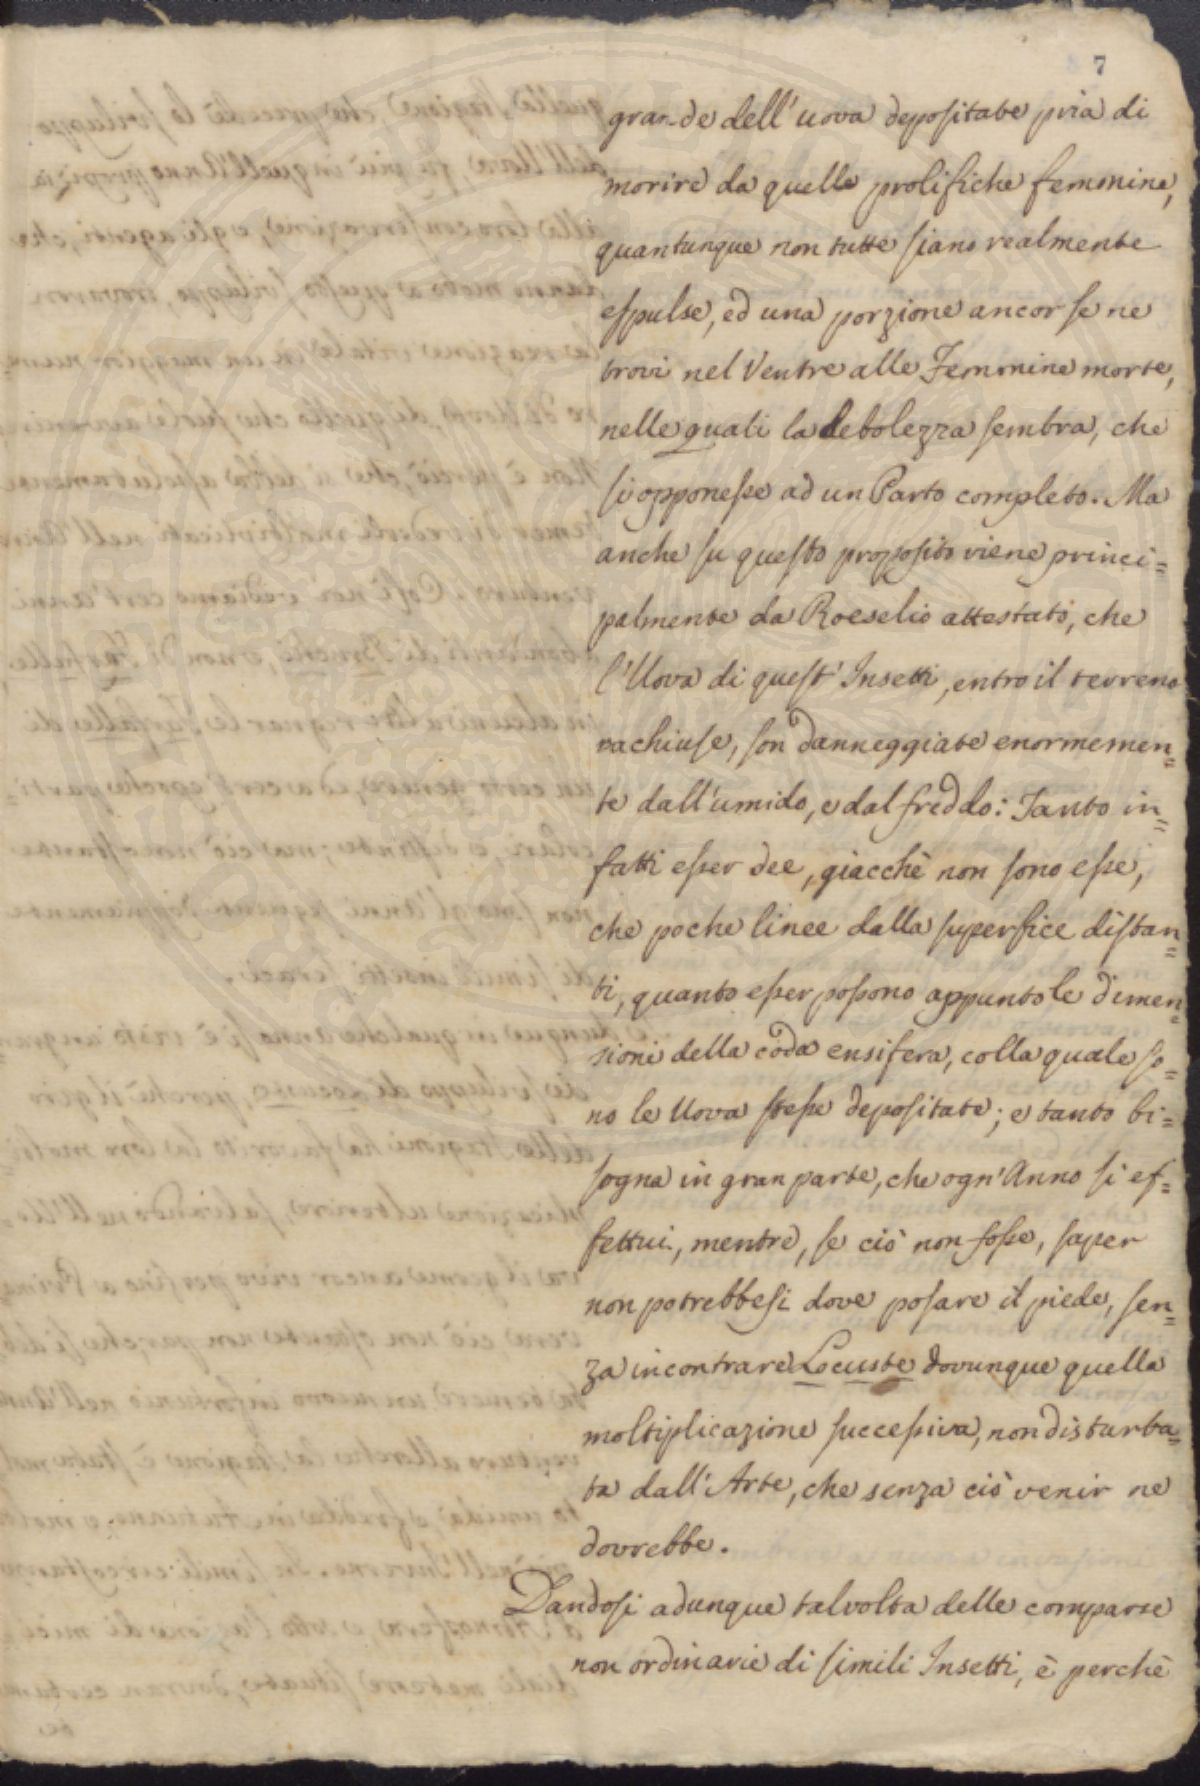 7
grande dell'uova depositate pria di
morire da quelle prolifiche femmine,
quantunque non tutte siano realmente
espulse, ed una porzione ancor se ne
trovi nel Ventre alle Femmine morte,
nelle quali la debolezza sembra, che
si opponesse ad un Parto completo. Ma
anche su questo proposito viene princi=
palmente da Roeselio attestato, che
l'Uova di quest'Insetti, entro il terreno
rachiuse, son danneggiate enormemen=
te dall'umido, e dal freddo: Tanto in=
fatti esser dee, giacchè non sono esse,
che poche linee dalla superfice distan=
ti, quanto esser possono appunto le dimen=
sioni della coda ensifera, colla quale so=
no le Uova stesse depositate; e tanto bi=
sogna in gran parte, che ogn'Anno si ef=
fettui, mentre, se ciò non fosse, saper
non potrebbesi dove posare il piede, sen=
za incontrare Locuste dovunque quella
moltiplicazione successiva, non disturba=
ta dall'Arte, che senza ciò venir ne
dovrebbe.
Dandosi adunque talvolta delle comparse
non ordinarie di simili Insetti, è perchè